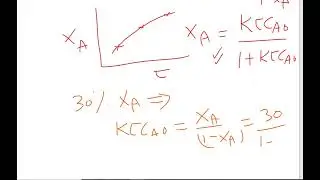 1-XA
XA = KτCA0 / 1+KτCA0
XA
τ
30% XA ⇒
KτCA0 = XA / (1-XA) = 30 / 1-